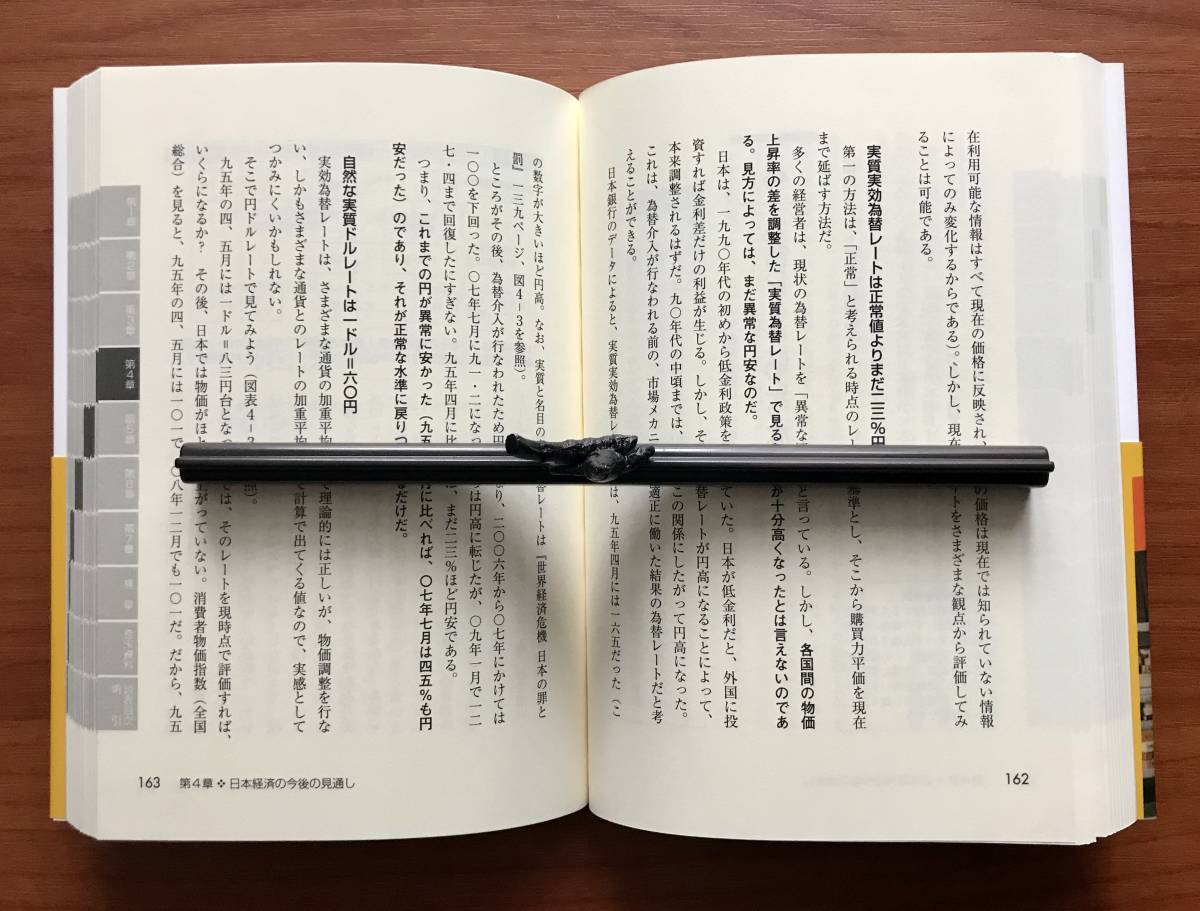 在利用可能な情報はすべて現在の価格に反映され、の価格は現在では知られていない情報
によってのみ変化するからである)。しかし、現在ートをさまざまな観点から評価してみ
ることは可能である。
実質実効為替レートは正常値よりまだ二三%円
第一の方法は、「正常」と考えられる時点のレー基準とし、そこから購買力平価を現在
まで延ばす方法だ。
多くの経営者は、現状の為替レートを「異常なと言っている。しかし、各国間の物価
上昇率の差を調整した「実質為替レート」で見るが十分高くなったとは言えないのであ
る。見方によっては、まだ異常な円安なのだ。
日本は、一九九〇年代の初めから低金利政策をていた。日本が低金利だと、外国に投
資すれば金利差だけの利益が生じる。しかし、そ替レートが円高になることによって、
本来調整されるはずだ。九〇年代の中頃までは、この関係にしたがって円高になった。
これは、為替介入が行なわれる前の、市場メカニ適正に働いた結果の為替レートだと考
えることができる。
日本銀行のデータによると、実質実効為替レは、九五年四月には一六五だった(こ
162
の数字が大きいほど円高。なお、実質と名目の替レートは『世界経済危機 日本の罪と
罰』一三九ページ、図4-3を参照)。
ところがその後、為替介入が行なわれたため円より、二〇〇六年から〇七年にかけては
一〇〇を下回った。〇七年七月に九一・二になっらは円高に転じたが、〇九年一月で一二
七・四まで回復したにすぎない。九五年四月に比ば、まだ二三%ほど円安である。
つまり、これまでの円が異常に安かった(九五月に比べれば、〇七年七月は四五%も円
安だった)のであり、それが正常な水準に戻りつるだけだ。
自然な実質ドルレートは一ドル=六〇円
実効為替レートは、さまざまな通貨の加重平均で理論的には正しいが、物価調整を行な
い、しかもさまざまな通貨とのレートの加重平均で計算で出てくる値なので、実感として
つかみにくいかもしれない。
そこで円ドルレートで見てみよう(図表4-3照)。
九五年の四、五月には一ドル=八三円台となっでは、そのレートを現時点で評価すれば、
いくらになるか? その後、日本では物価がほと上がっていない。消費者物価指数(全国
総合)を見ると、九五年の四、五月には一〇一で〇八年一二月でも一〇一だ。だから、九五
第1章
第2章
第3章
第4章
第5章
第6章
第7章
163 第4章❖日本経済の今後の見通し